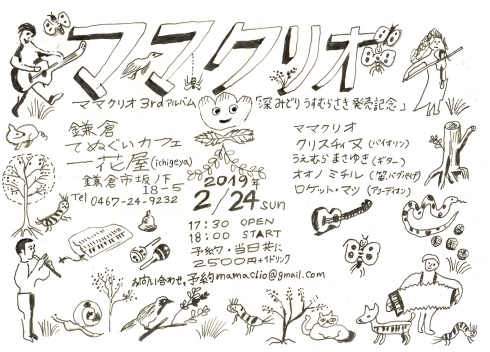 ママクリオ
ママクリオ 3rdアルバム「深みどりうすむらさき発売記念」
鎌倉
てぬぐいカフェ
一花屋(ichigeya)
鎌倉市坂ノ下
18-5
Tel 0467-24-9232
2019年
2/24 SUN
17:30 OPEN
18:00 START
予約・当日共に
2500円+1ドリンク
お問い合わせ、予約 mamaclio@gmail.com
ママクリオ
クリスチィヌ(バイオリン)
うえむらまさゆき(ギター)
オオノ ミチル(笛
ロケット・マツ(アコーディオン)